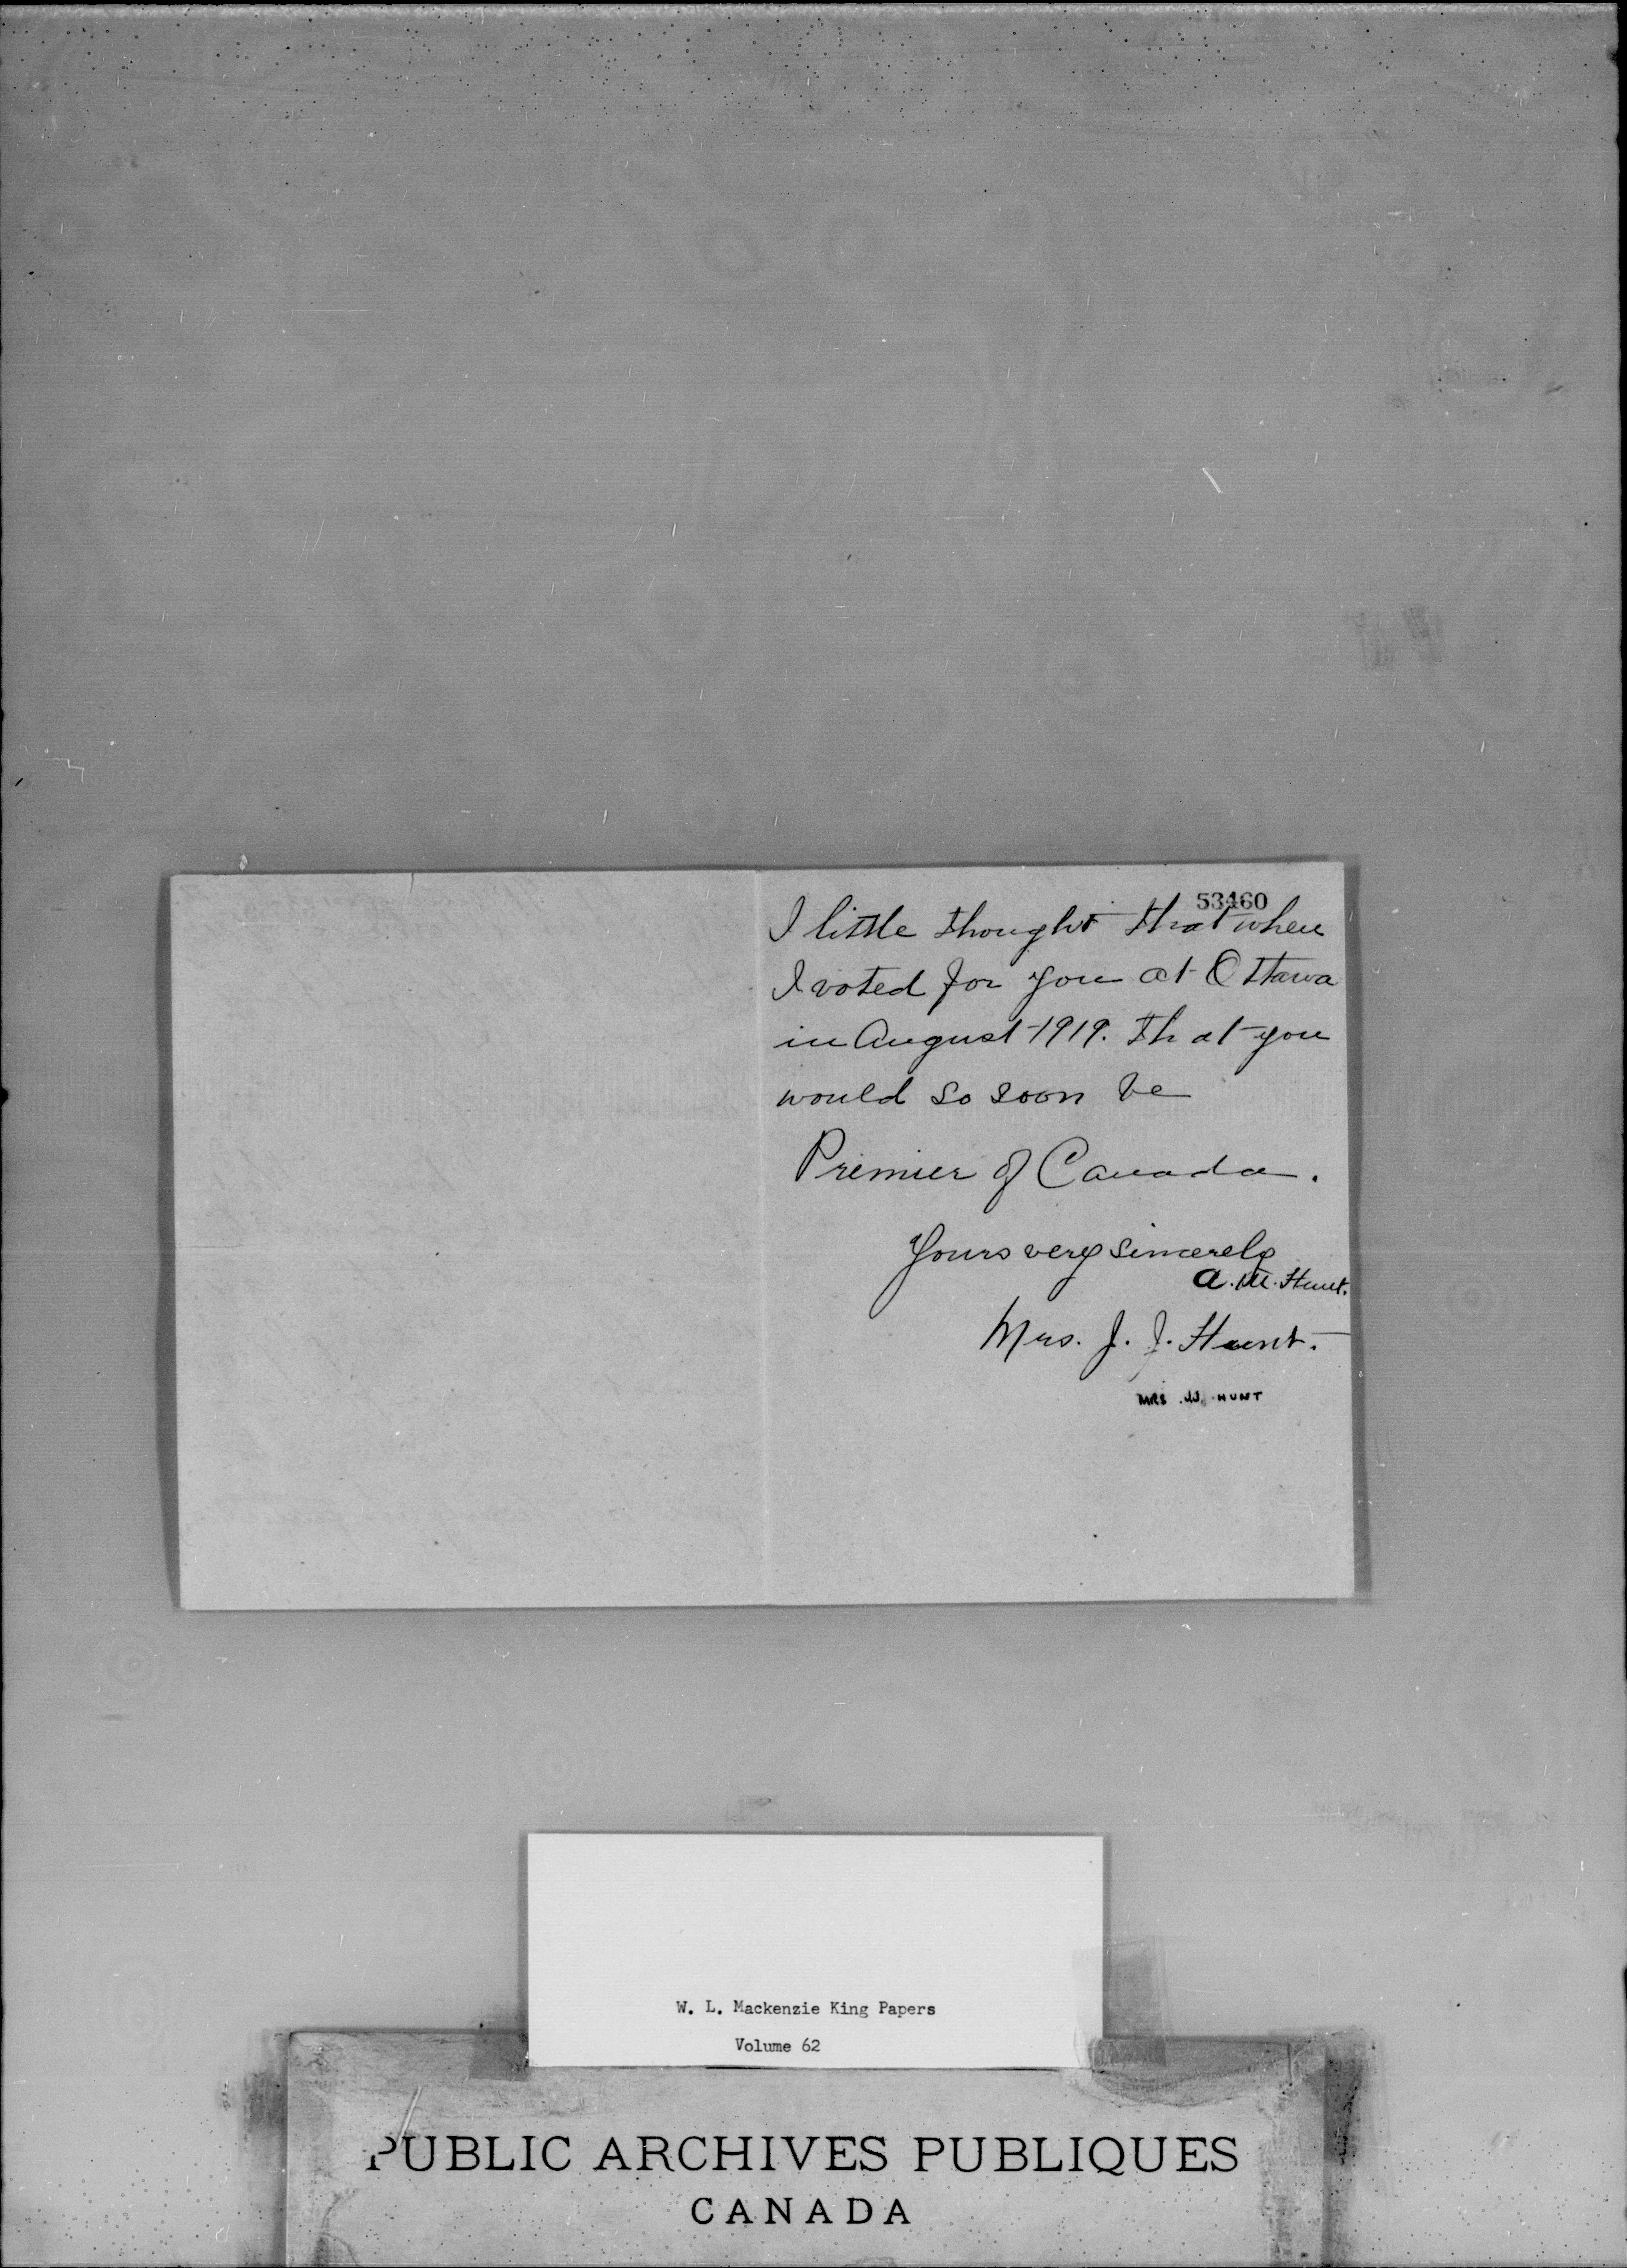 53460
I little thought that when
I voted for you at Ottawa
in August 1919. That you
would so soon be
Premier of Canada.
Yours very sincerely
A. M. Hunt.
Mrs. J. J. Hunt.
MRS. J.J. HUNT
W. L. Mackenzie King Papers
Volume 62
PUBLIC ARCHIVES PUBLIQUES
CANADA